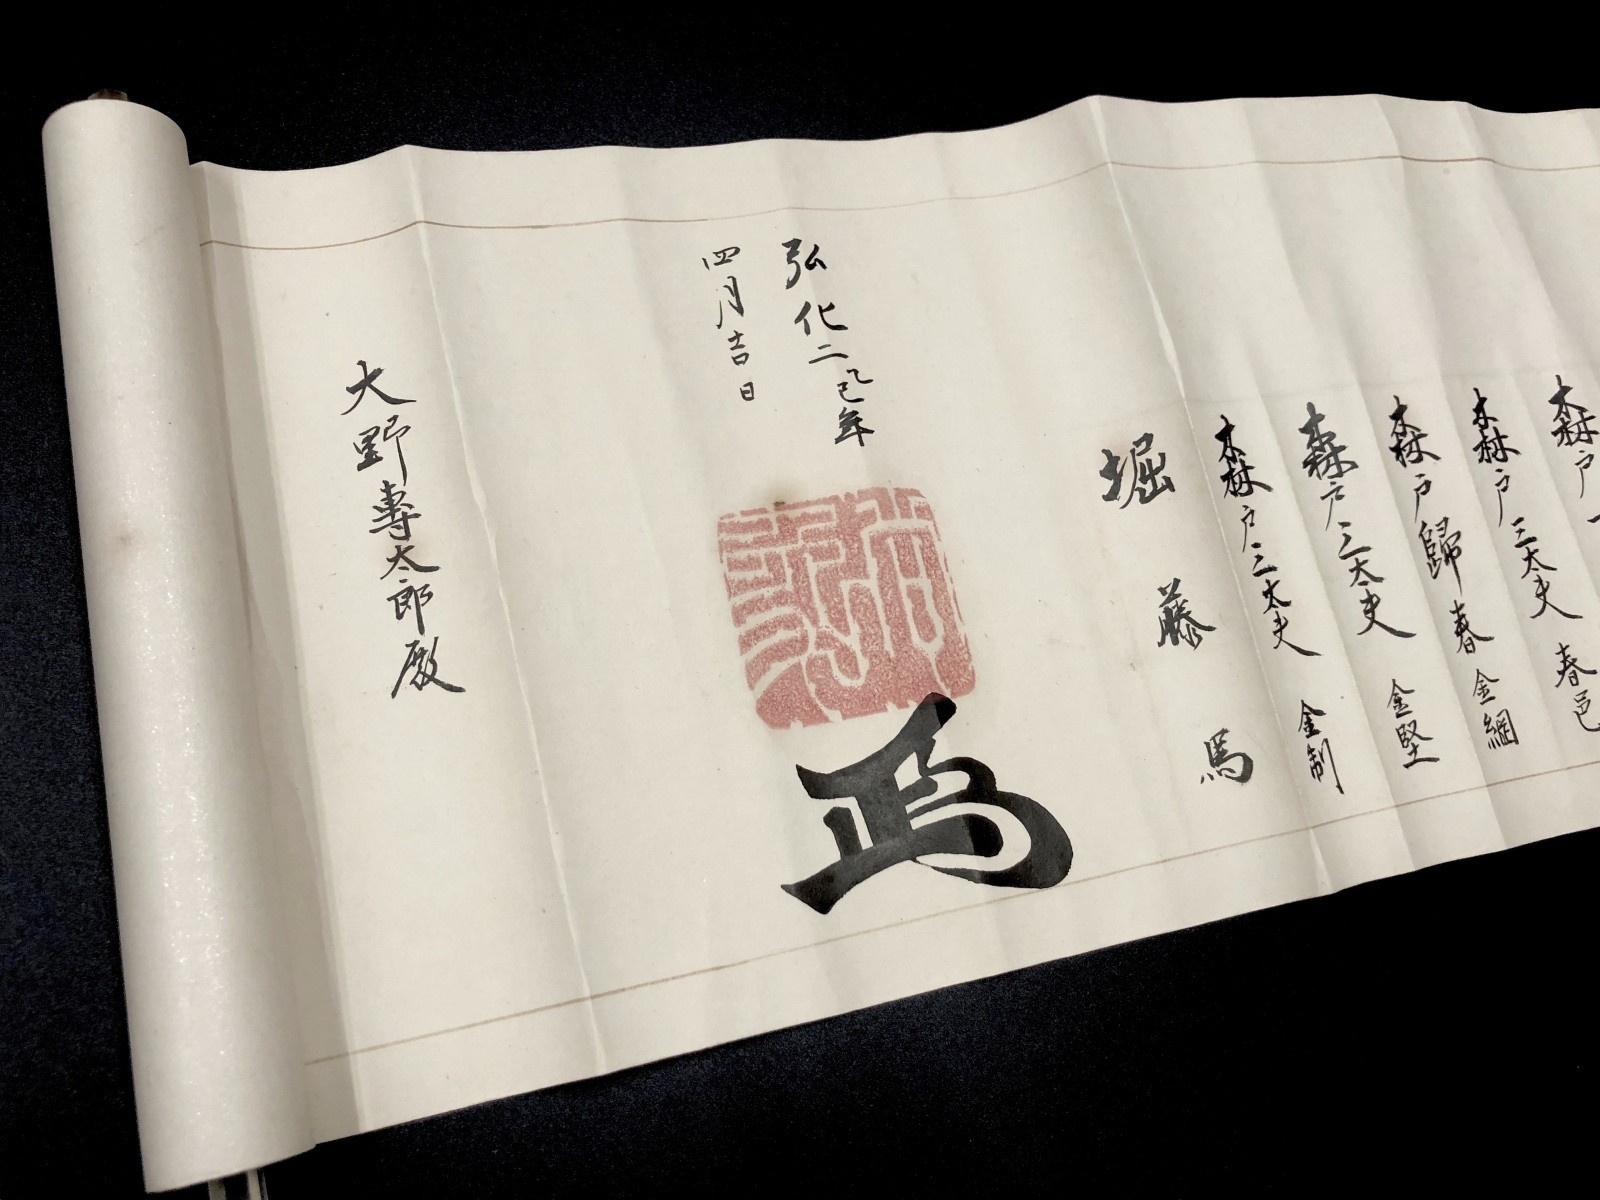 森戸
春邑
森戸三太夫
金綱
森戸歸春
金堅
森戸三太夫
金制
森戸三太夫
堀藤馬
弘化二乙巳年
四月吉日
大野專太郎殿